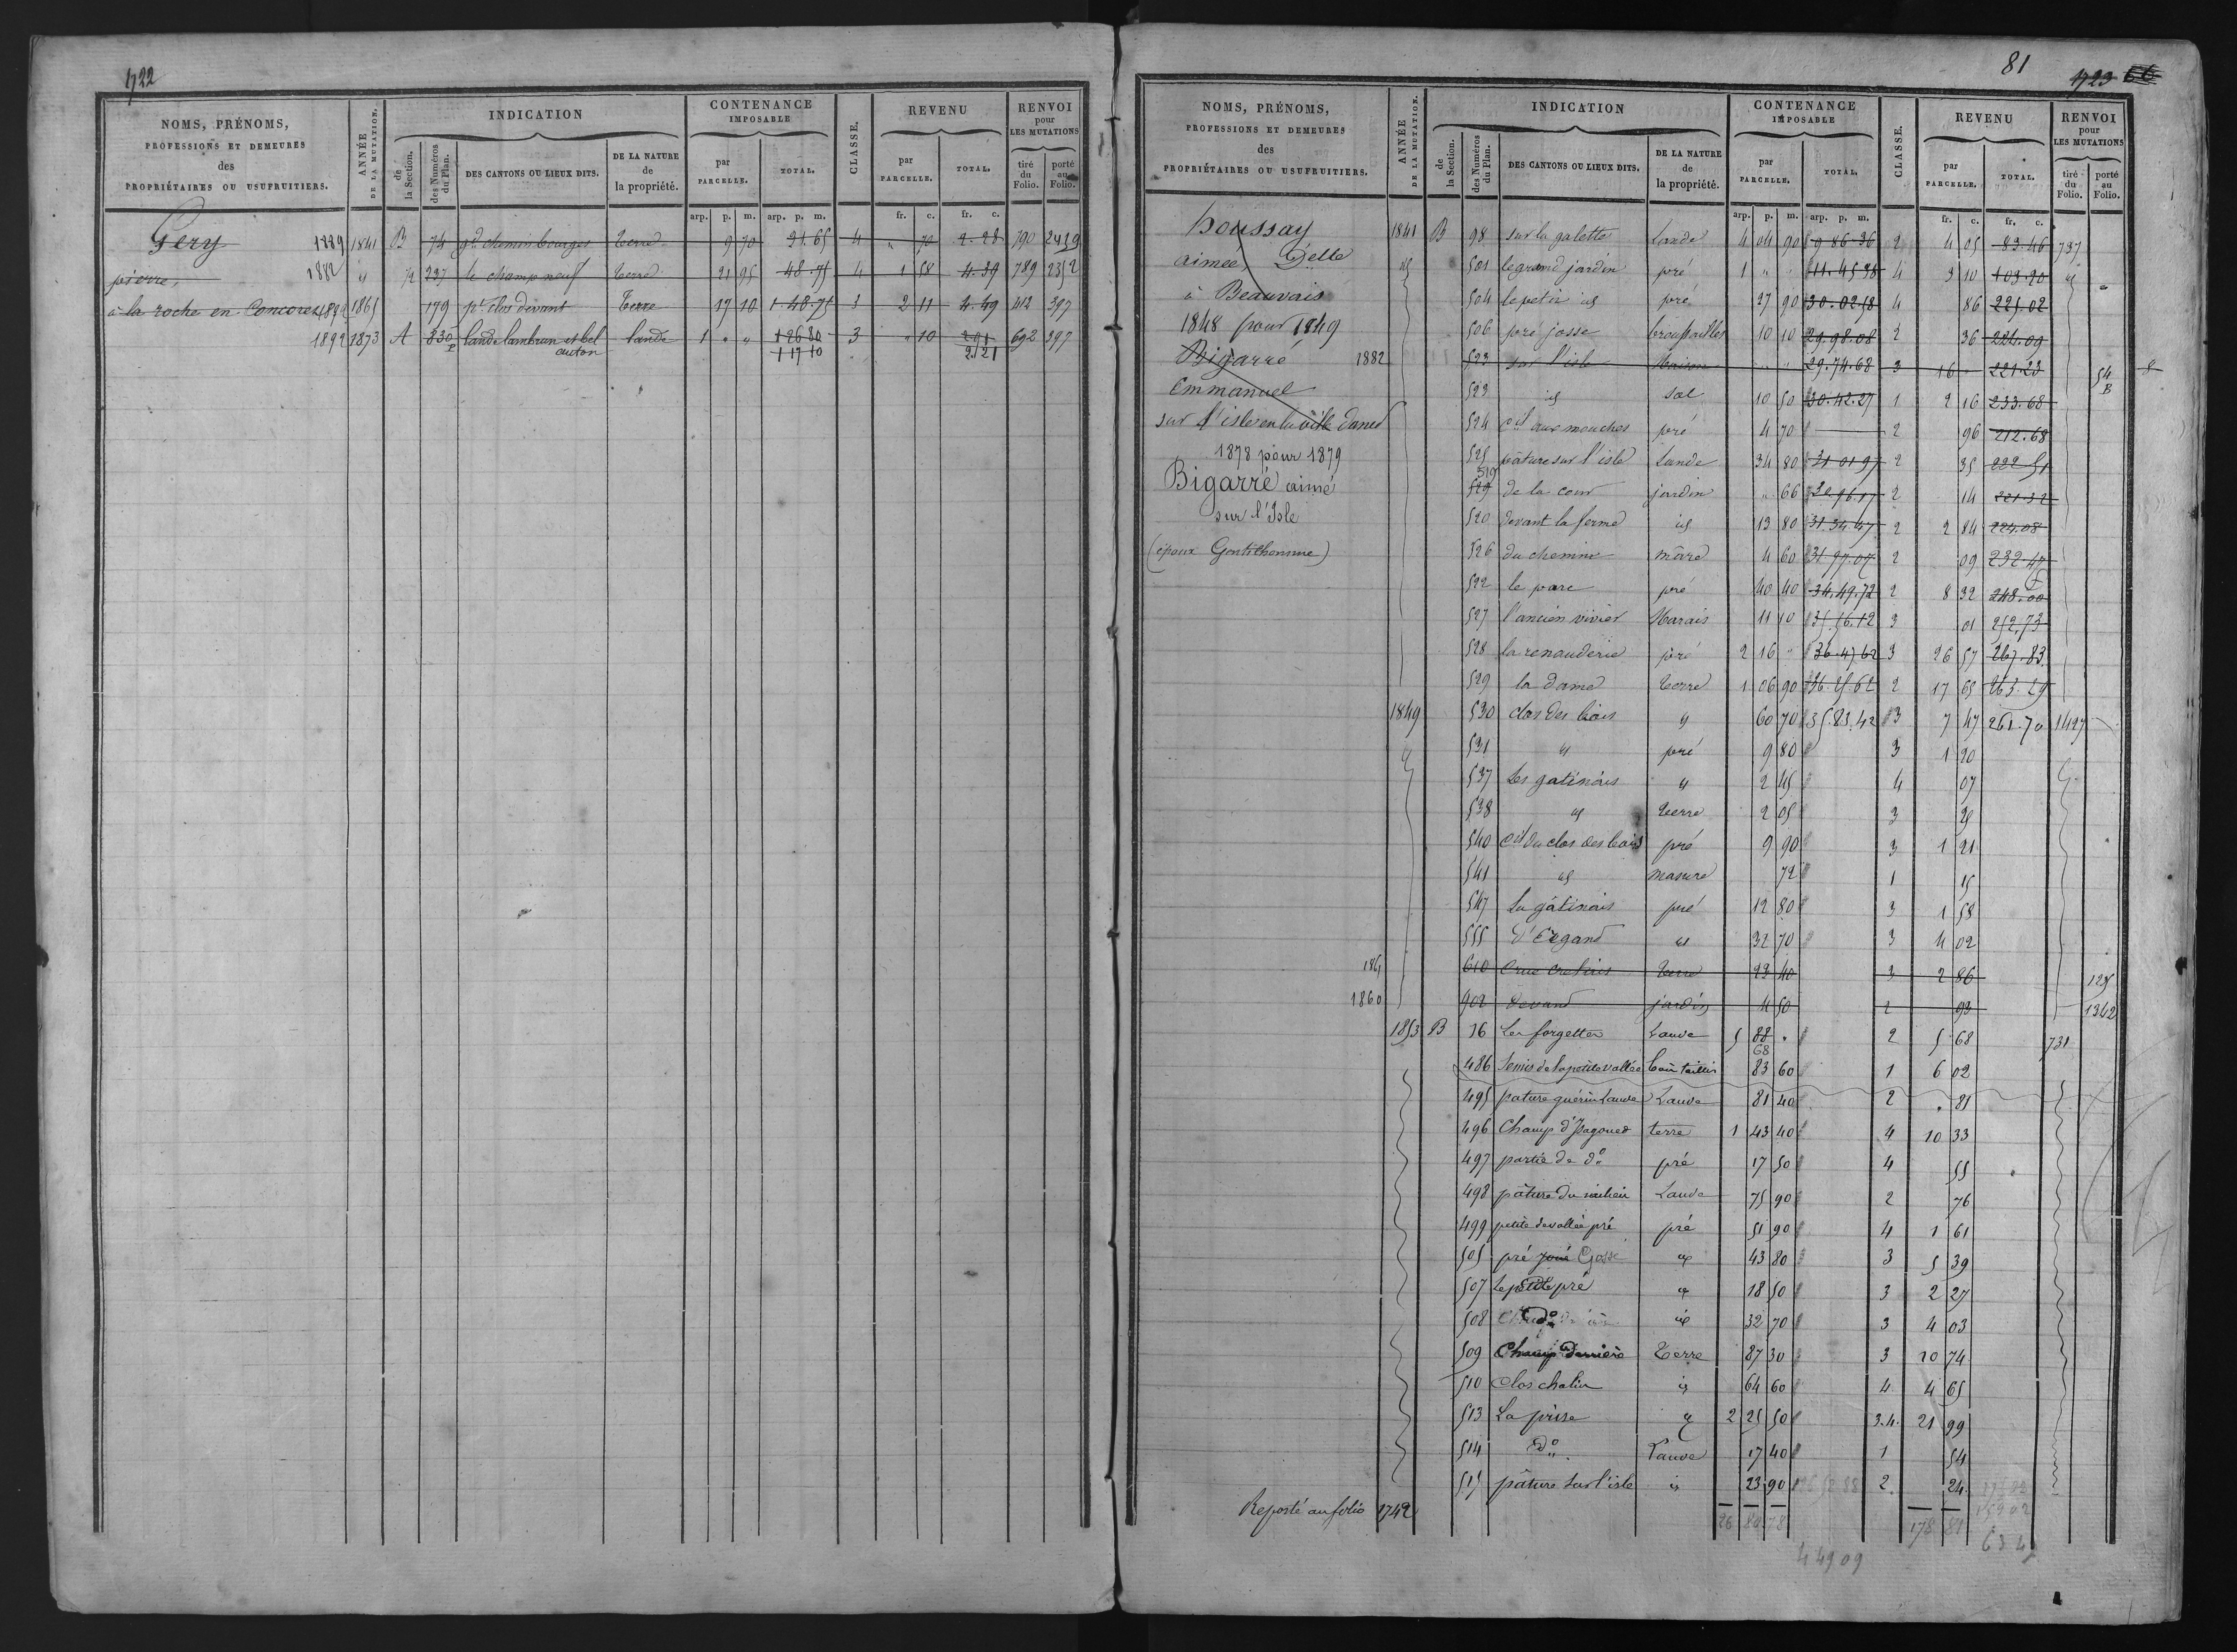 1722
NOMS, PRÉNOMS, PROFESSIONS ET DEMEURES des PROPRIÉTAIRES OU USUFRUITIERS.
ANNÉE DE LA MUTATION.
INDICATION
de la Section.
des Numéros du Plan.
DES CANTONS OU LIEUX DITS.
DE LA NATURE de la propriété.
CONTENANCE IMPOSABLE
par PARCELLE.
TOTAL.
CLASSE.
REVENU
par PARCELLE.
TOTAL.
RENVOI pour LES MUTATIONS
tiré du Folio.
porté au Folio.
arp. p. m. arp. p. m. fr. c. fr. c.
Gery 1889 1841 B 74 gd chemin bourges terre 9 70 4 " 70 2.28 790
pierre, 1882 " 237 le champ neuf terre 21 95 4 1 58 4.39 789 2352
à la roche en Concoret 1892 1865 179 pt clos devant terre 17 10 1.48.75 3 2 11 4.49 412 397
1892 1873 A 830 p lande lambrun et bel lande 1 " " 1 26 80 3 " 10 2 91 692 397
1 17 10 2.21
81
1723 66
NOMS, PRÉNOMS, PROFESSIONS ET DEMEURES des PROPRIÉTAIRES OU USUFRUITIERS.
ANNÉE DE LA MUTATION.
INDICATION
de la Section.
des Numéros du Plan.
DES CANTONS OU LIEUX DITS.
DE LA NATURE de la propriété.
CONTENANCE IMPOSABLE
par PARCELLE.
TOTAL.
CLASSE.
REVENU
par PARCELLE.
TOTAL.
RENVOI pour LES MUTATIONS
tiré du Folio.
porté au Folio.
arp. p. m. arp. p. m. fr. c. fr. c.
houssay 1841 B 98 sur la galette Lande 4 04 90 9 86 36 2 4 05 83.46 737
aimee, Delle id 501 le grand jardin pré 1 " " 11.45.38 4 3 10 103.20 id
à Beauvais 504 le petit id pré 27 90 30.02.18 4 86 225.02
1848 pour 1849 506 pré josse broussailles 10 10 29.98.08 2 36 224.09
Bigarré 1882 523 sur l'isle Maison " " 29.74.68 3 16 " 221.23 54 B
Emmanuel 523 id sol 10 50 30.42.27 1 2 16 233.68
sur l'isle en la ville 524 aux mouches pré 4 70 2 96 212.68
1878 pour 1879 525 pâture sur l'isle Lande 34 80 31 01 97 2 35 222 51
Bigarré aimé 519 de la cour jardin " 66 30.96.17 2 14 221.32
sur l'Isle 520 devant la ferme id 13 80 31 34 47 2 2 84 224.08
(époux Gentilhomme) 526 du chemin mâre 4 60 31.97.07 2 09 232.47
522 le parc pré 40 40 34.49.72 2 8 32 248.00
527 l'ancien vivier Marais 11 10 35.56.12 3 01 252,73
528 la renauderie pré 2 16 " 36.47 62 3 26 57 267.83
529 la dame terre 1 06 90 36.25.62 2 17 65 263.29
1849 530 clos des bois id 60 70 35.83.42 3 7 47 261.70 1427
id 531 id pré 9 80 3 1 20
537 Les gatinais id 2 45 4 07
538 id terre 2 05 3 25
540 du clos des bois pré 9 90 3 1 21
541 id masure 72 1 15
547 La gâtinais pré 12 80 3 1 58
555 id 32 70 3 4 02
1861 610 terre 23 40 3 2 86 125
1860 902 devant jardin 4 50 2 93 1342
1853 B 76 Les forgettes Lande 5 88 " 2 5 68 731
68
486 Semis de la petite vallée bois taillis 83 60 1 6 02
495 pature guérin Lande Lande 81 40 2 " 81
496 Champ d'Pagoued terre 1 43 40 4 10 33
497 partie de do pré 17 50 4 55
498 pâture du milieu Lande 75 90 2 76
499 petite devallée pré pré 51 90 4 1 61
505 pré Gosse id 43 80 3 5 39
507 Le petit pré id 18 50 3 2 27
508 do id 32 70 3 4 03
509 Champ Derrière Terre 87 30 3 10 74
510 Clos chalin id 64 60 4 4 65
513 La prise id 2 25 50 3.4. 21 99
514 do Lande 17 40 1 54
515 pâture sur l'isle id 23 90 2 24
Reporté au folio 1742
178 81
4 49 09